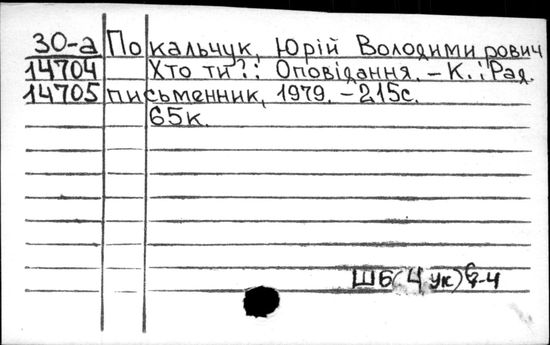 30-а Покальчук, Юрій Володимирович
14704 Хто ти?: Оповідання. – К.: Рад.
14705 письменник, 1979. – 215с.
65к.
ШБ(4 ук)